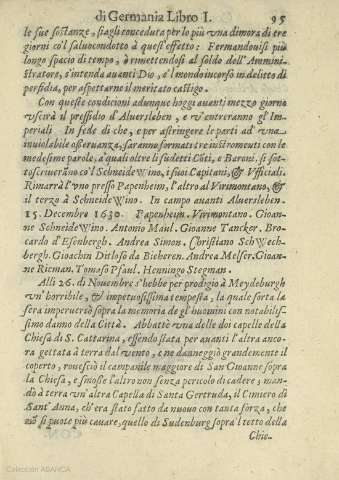 di Germania Libro I. 95
le sue sostanze, siagli conceduta per lo più vna dimora di tre
giorni col saluocondotto à quest'effetto: Fermandouisi più
longo spacio di tempo, ò rimettendosi al soldo dell'Ammini-
stratore, s'intenda auanti Dio, e'l mondo incorso in delitto di
perfidia, per aspettarne il meritato castigo.
Con queste condizioni adunque hoggi auanti mezzo giorno
vscirà il pressidio di Aluersleben, e v'entreranno gl'Im-
periali. In fede di che, e per astringere le parti ad vna
inuiolabile osseruanza, saranno formati tre instromenti con le
medesime parole, à quali oltre li sudetti Cōti, e Baroni, si sot-
toscriuerano col Schneide Wino, i suoi Capitani, & Vfficiali.
Rimarrà l'vno presso Papenheim, l'altro al Virimontano, &
il terzo à Schneide Wino. In campo auanti Aluersleben.
15. Decembre 1630. Papenheim. Virimontano. Gioan-
ne Schneide Wino. Antonio Maul. Gioanne Tancker. Bro-
cardo d'Esenbergh. Andrea Simon. Christiano Sch Wech-
bergh. Gioachin Ditloso da Bieheren. Andrea Melser. Gioan-
ne Ricman. Tomaso Pfaul. Henningo Stegman.
Alli 26. di Nouembre s'hebbe per prodigio à Meydeburgh
vn'horribile, & impetuosissima tempesta, la quale sorta la
sera imperuersò sopra la memoria de gl'huomini con notabilis-
simo danno della Città. Abbattè vna delle doi capelle della
Chiesa di S. Cattarina, essendo stata per auanti l'altra ancor
gettata à terra dal vento, e ne danneggiò grandemente il
coperto, rouesciò il campanile maggiore di San Gioanne sopra
la Chiesa, e smosse l'altro non senza pericolo di cadere; man-
dò à terra vn'altra Capella di Santa Gertruda, il Cimiero di
Sant'Anna, ch'era stato fatto da nuovo con tanta forza, che
nō si puote più cauare, quello di Sudenburg sopra'l tetto della
Chie-
Colección ABANCA